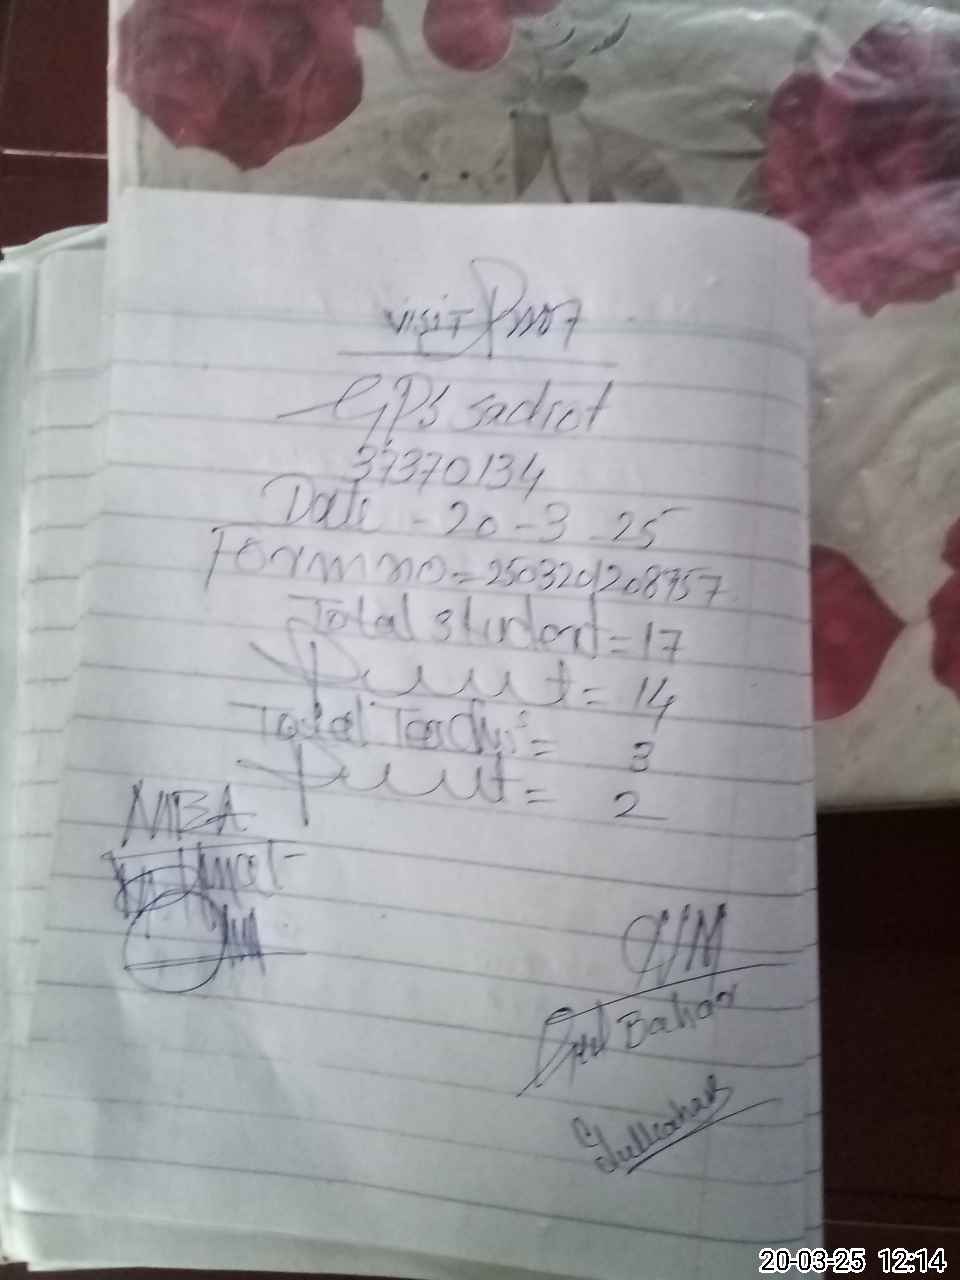 VISIT Proof
GPS Sadrot
37370134
Date - 20 - 3 - 25
Form no = 2503201208957
Total student = 17
Present = 14
Total Teachers = 3
Present = 2
MBA
Gul Bahar
Gulbahar
20-03-25 12:14